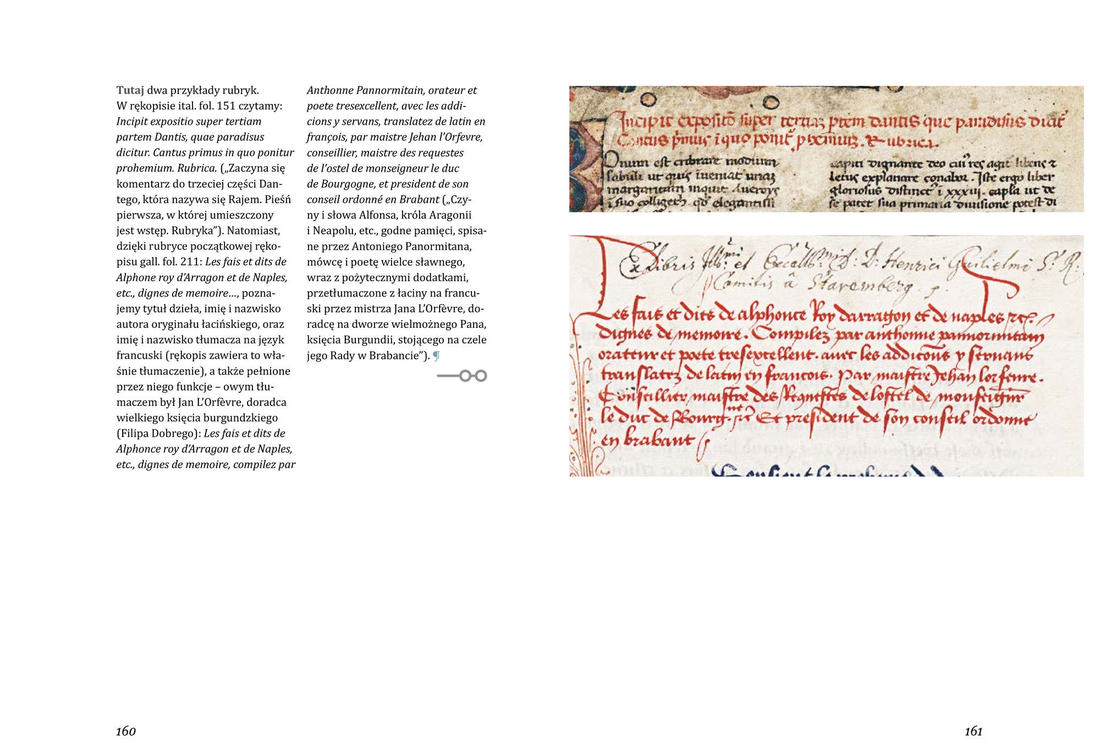 Tutaj dwa przykłady rubryk.
W rękopisie ital. fol. 151 czytamy:
Incipit expositio super tertiam
partem Dantis, quae paradisus
dicitur. Cantus primus in quo ponitur
prohemium. Rubrica. („Zaczyna się
komentarz do trzeciej części Dan-
tego, która nazywa się Rajem. Pieśń
pierwsza, w której umieszczony
jest wstęp. Rubryka”). Natomiast,
dzięki rubryce początkowej ręko-
pisu gall. fol. 211: Les fais et dits de
Alphone roy d’Arragon et de Naples,
etc., dignes de memoire…, pozna-
jemy tytuł dzieła, imię i nazwisko
autora oryginału łacińskiego, oraz
imię i nazwisko tłumacza na język
francuski (rękopis zawiera to wła-
śnie tłumaczenie), a także pełnione
przez niego funkcje – owym tłu-
maczem był Jan L’Orfèvre, doradca
wielkiego księcia burgundzkiego
(Filipa Dobrego): Les fais et dits de
Alphonce roy d’Arragon et de Naples,
etc., dignes de memoire, compilez par
Anthonne Pannormitain, orateur et
poete tresexcellent, avec les addi-
cions y servans, translatez de latin en
françois, par maistre Jehan l’Orfevre,
conseillier, maistre des requestes
de l’ostel de monseigneur le duc
de Bourgogne, et president de son
conseil ordonné en Brabant („Czy-
ny i słowa Alfonsa, króla Aragonii
i Neapolu, etc., godne pamięci, spisa-
ne przez Antoniego Panormitana,
mówcę i poetę wielce sławnego,
wraz z pożytecznymi dodatkami,
przetłumaczone z łaciny na francu-
ski przez mistrza Jana L’Orfèvre, do-
radcę na dworze wielmożnego Pana,
księcia Burgundii, stojącego na czele
jego Rady w Brabancie”). ¶
160
Incipit expositō super tertiaʒ ptem dantis que paradisus dicit
pmus i quo ponit phemiuʒ. Rubrica.
Onum est cribrare modium
sabuli ut quis iueniat unaʒ
margaritam inquit Averoys
i suo colligerʒ elegantisti
capiti dignante deo cui res agit libens
letius explanare conabor. Iste ergo liber
gloriosus distinct i xxxiii. capla ut de
se patet sua primaria divisione potest di
Ex Libris et D: D: Henrici Guilielmi S. R.
Comitis à Staremberg.
Les fais et dits de alphonce Roy darragon et de naples
dignes de memoire. Compilez par anthonne pannormitain
orateur et poete tresexcellent. avec les addicons y servans
translatez de latin en francois. Par maistre Jehan lorfevre.
Conseillier maistre des Requestes de lostel de monseigr
le duc de Bourg. Et president de son conseil ordonne
en brabant
161